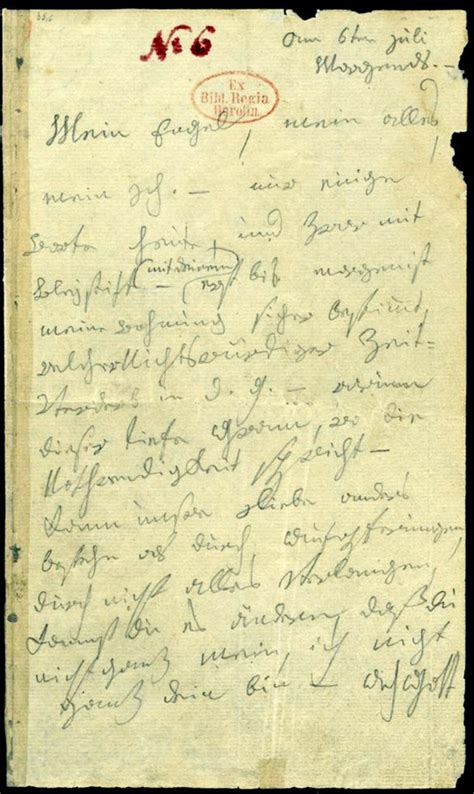 No 6
am 6ten Juli
Morgends. –
Ex
Bibl. Regia
Berolin.
Mein Engel, mein alles,
mein Ich. – nur einige
Worte heute, und zwar mit
Bleystift – (mit deinem) erst bis morgen ist
meine Wohnung sicher bestimmt,
welcher Nichtswürdiger Zeit-
verderb in d. g. – warum
dieser tiefe Gram, wo die
Nothwendigkeit spricht –
Kann unsre Liebe anders
bestehn als durch Aufopferungen,
durch nicht alles verlangen,
kannst du es ändern, daß du
nicht ganz mein, ich nicht
ganz dein bin – Ach Gott